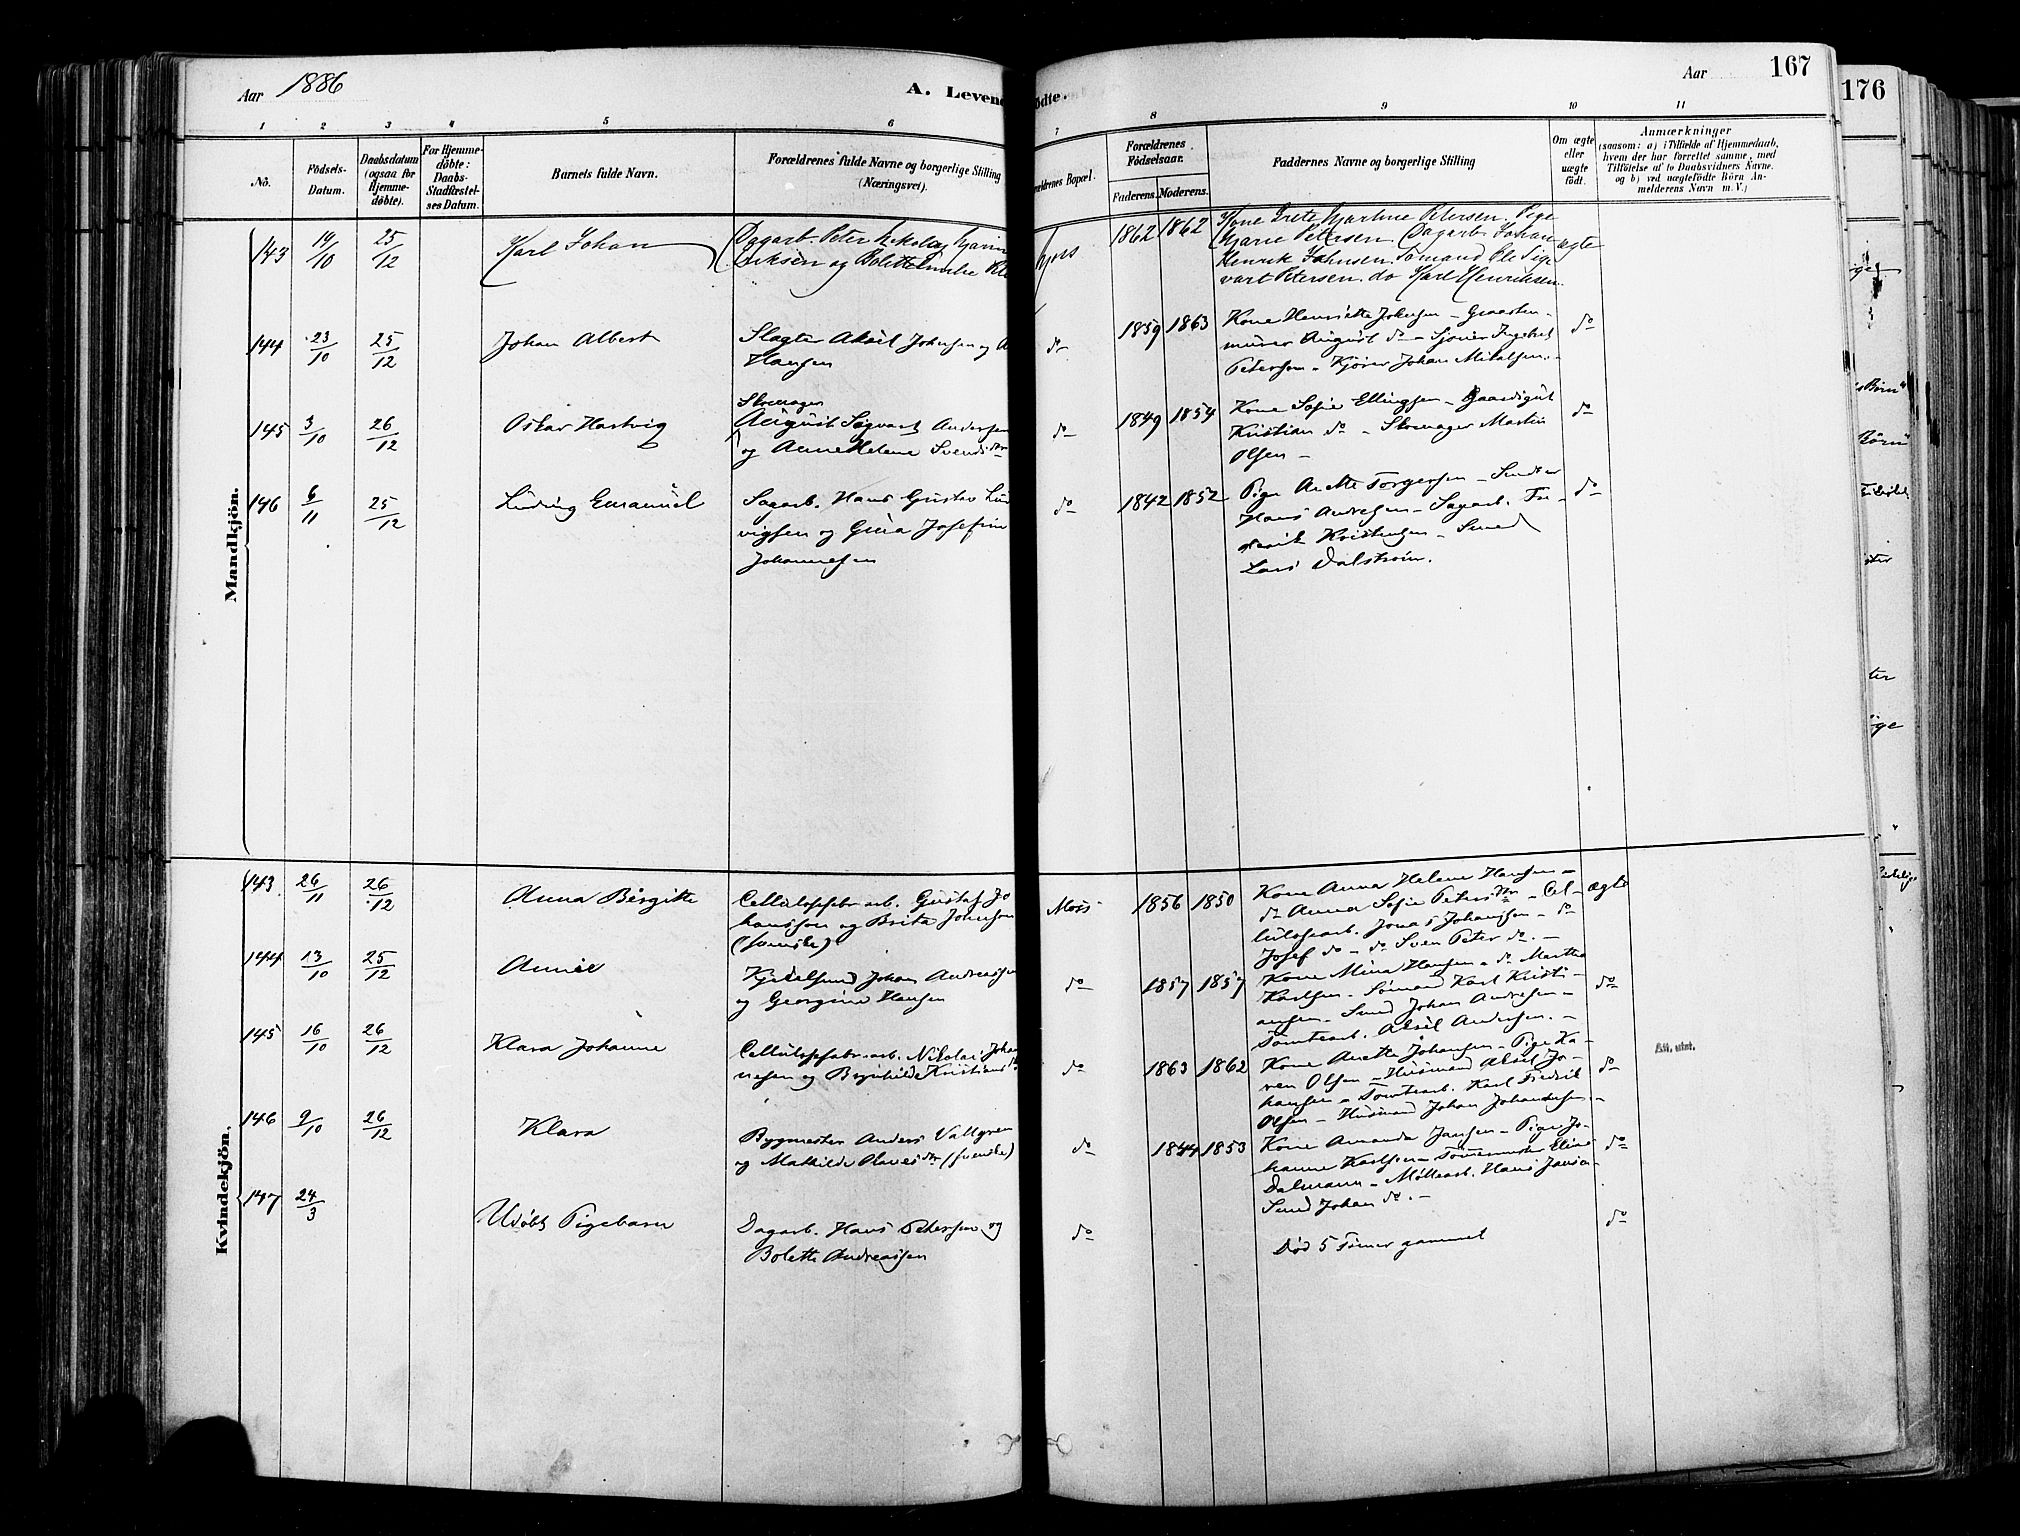 Aar 1886
A. Levende
ødte.
Aar
167
176
1 2 3 4 5 6 7 8 9 10 11
No.
Födsels-
Datum.
Daabsdatum
(ogsaa for
Hjemme-
döbte).
For Hjemme-
döbte:
Daabs-
Stadfæstel-
ses Datum.
Barnets fulde Navn.
Forældrenes fulde Navne og borgerlige Stilling
(Næringsvei).
ældrenes Bopæl.
Forældrenes
Födselsaar.
Faderens. Moderens.
Faddernes Navne og borgerlige Stilling
Om ægte
eller
uægte
födt.
Anmærkninger
(saasom: a) i Tilfælde af Hjemmedaab,
hvem der har forrettet samme, med
Tilföielse af to Daabsvidners Navne.
og b) ved uægtefödte Börn An-
melderens Navn m. V.)
Mandkjön.
143 19/10 25/12 Karl Johan
Dagarb. Peter Nikolai
og
1862 1862
Kone Grete Martine Petersen. Pige
Marie Petersen. Dagarb. Johan
Henrik Johnsen. Sømand Ole Sige
vart Petersen. do Karl Henriksen.
ægte
144 23/10 25/12 Johan Albert
Slagter Aksel Johnsen og A
Hansen
do
1859 1863
Kone Henriette Johnsen - Graasten-
murer August do -
Petersen - Kjører Johan
do
145 3/10 26/12 Oskar Hartvig
Skomager
August Sigvart Andersen
og Anne Helene Svendsdtr
do
1849 1854
Kone Sofie Ellingsen - Gaardsgut
Kristian do - Skomager Martin
Olsen -
do
146 6/11 25/12 Ludvig Emanuel
Sagarb. Hans Gustav Lud
vigsen og Gina Josefine
Johannesen
do
1842 1852
Pige Anette Torgersen -
Hans Andresen - Sagarb. Fre-
derik Kristensen - Smed
Lars Dalstrøm.
do
Kvindekjön.
143 26/11 26/12 Anna Birgitte
Cellulosefabr. arb. Gustaf Jo
hansson og Brita Johnsson
(svenske)
Moss
1856 1850
Kone Anna Helene Hansen -
do Anna Sofie Petersdtr - Cel-
lulosearb. Jonas Johansson - do
Josef do - do Sven Peter do. -
ægte
144 13/10 25/12
Kjedelsmed Johan Andreassen
og Georgine Hansen
do
1857 1857
Kone Mina Hansen - do Martha
Karlsen - Sømand Karl Kristi-
ansen - Smed Johan Andresen -
Tomtearb. Aksel Andersen. -
do
145 16/10 26/12 Klara Johanne
Cellulosefabr. arb. Nikolai Johan
nesen og Brynhilde Kristians
do
1863 1862
Kone Anette Johansen - Pige Ka-
ren Olsen - Husmand Aksel Jo-
hansen - Tomtearb. Karl Fredrik
Olsen - Husmand Johan Johannesen. -
do
Att. utst.
146 9/10 26/12 Klara
Bygmester Anders Vallgren
og Mathilde Olavesdtr (svenske)
do
1844 1853
Kone Amanda Jansen - Pige Jo-
hanne Karlsen - Tømmermester Elias
Dalmann - Møllearb. Hans Janson
Smed Johan do. -
do
147 24/3 Udøbt Pigebarn
Dagarb. Hans Petersen og
Bolette Andreassen
do
Død 5 Timer gammel
do